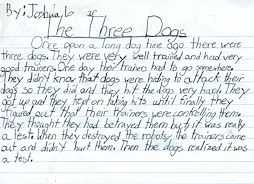 By: Joshua, 6
The Three Dogs
Once upon a long dog time ago there were
three dogs. They were very well trained and had very
good trainers. One day ther trainers had to go somewhere.
They didn't know that dogs were hiding to attack their
dogs so they did and they hit the dogs very hard. They
got up and they kept on taking hits until finally they
figured out that their trainers were controlling them.
They thought they had betrayed them but it was really
a test. When they destroyed the robots, the trainers came
out and didn't hurt them. Then the dogs realized it was
a test.